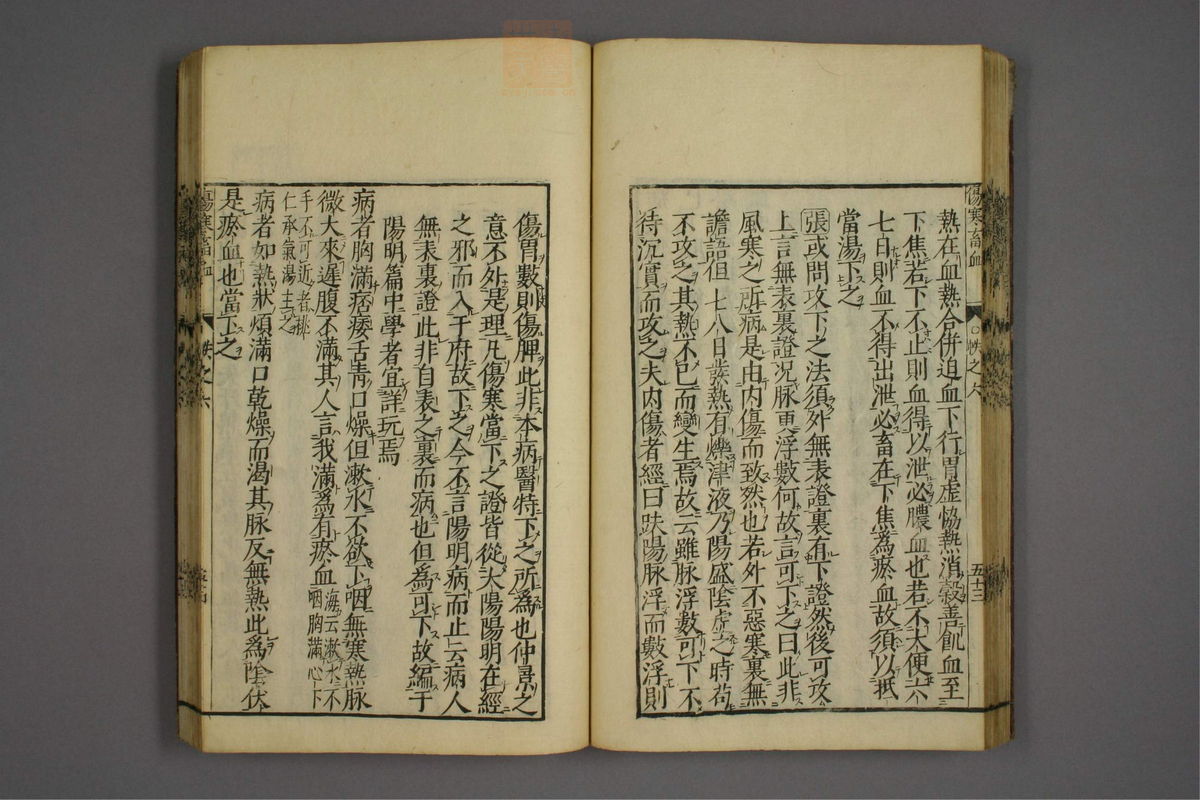 熱在血熱合併迫血下行胃虛恊熱消穀善飢血至
下焦若下不止則血得以泄必膿血也若不大便六
七日則血不得出泄必畜在下焦為瘀血故須以抵
當湯下之
張或問攻下之法須外無表證裏有下證然後可攻
上言無表裏證况脉更浮數何故言可下之曰此非
風寒之所病是由内傷而致然也若外不惡寒裏無
譫語但七八日發熱有爍津液乃陽盛陰虛之時苟
不攻之其熱不已而變生焉故云雖脉浮數可下不
待沉實而攻之夫内傷者經曰趺陽脉浮而數浮則
傷寒畜血
帙之六
五十三
傷胃數則傷脾此非本病醫特下之所為也仲景之
意不外是理凡傷寒當下之證皆從太陽陽明在經
之邪而入于府故下之今不言陽明病而止云病人
無表裏證此非自表之裏而病也但為可下故編于
陽明篇中學者宜詳玩焉
病者胸滿痞痿舌青口燥但漱水不欲下咽無寒熱脉
微大來遲腹不滿其人言我滿為有瘀血海云漱水不
咽胸滿心下
手不可近者桃
仁承氣湯主之
病者如熱狀煩滿口乾燥而渴其脉反無熱此為陰伏
是瘀血也當下之
傷寒畜血
帙之六